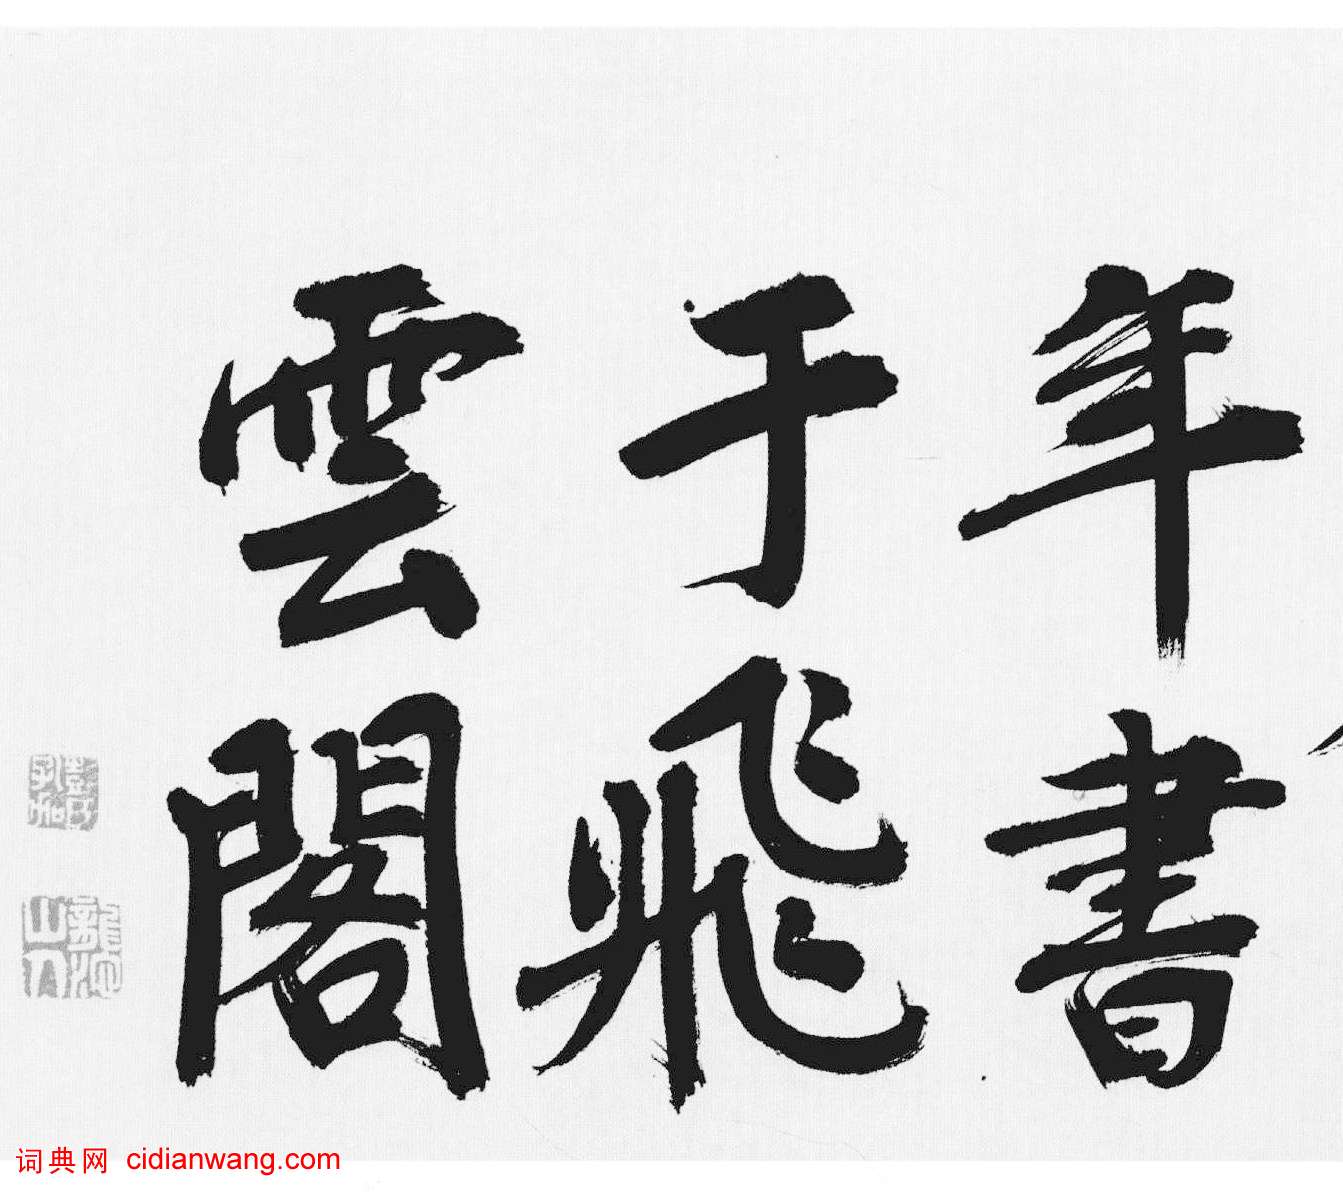 年書
于飛
雲閣
词典网 cidianwang.com